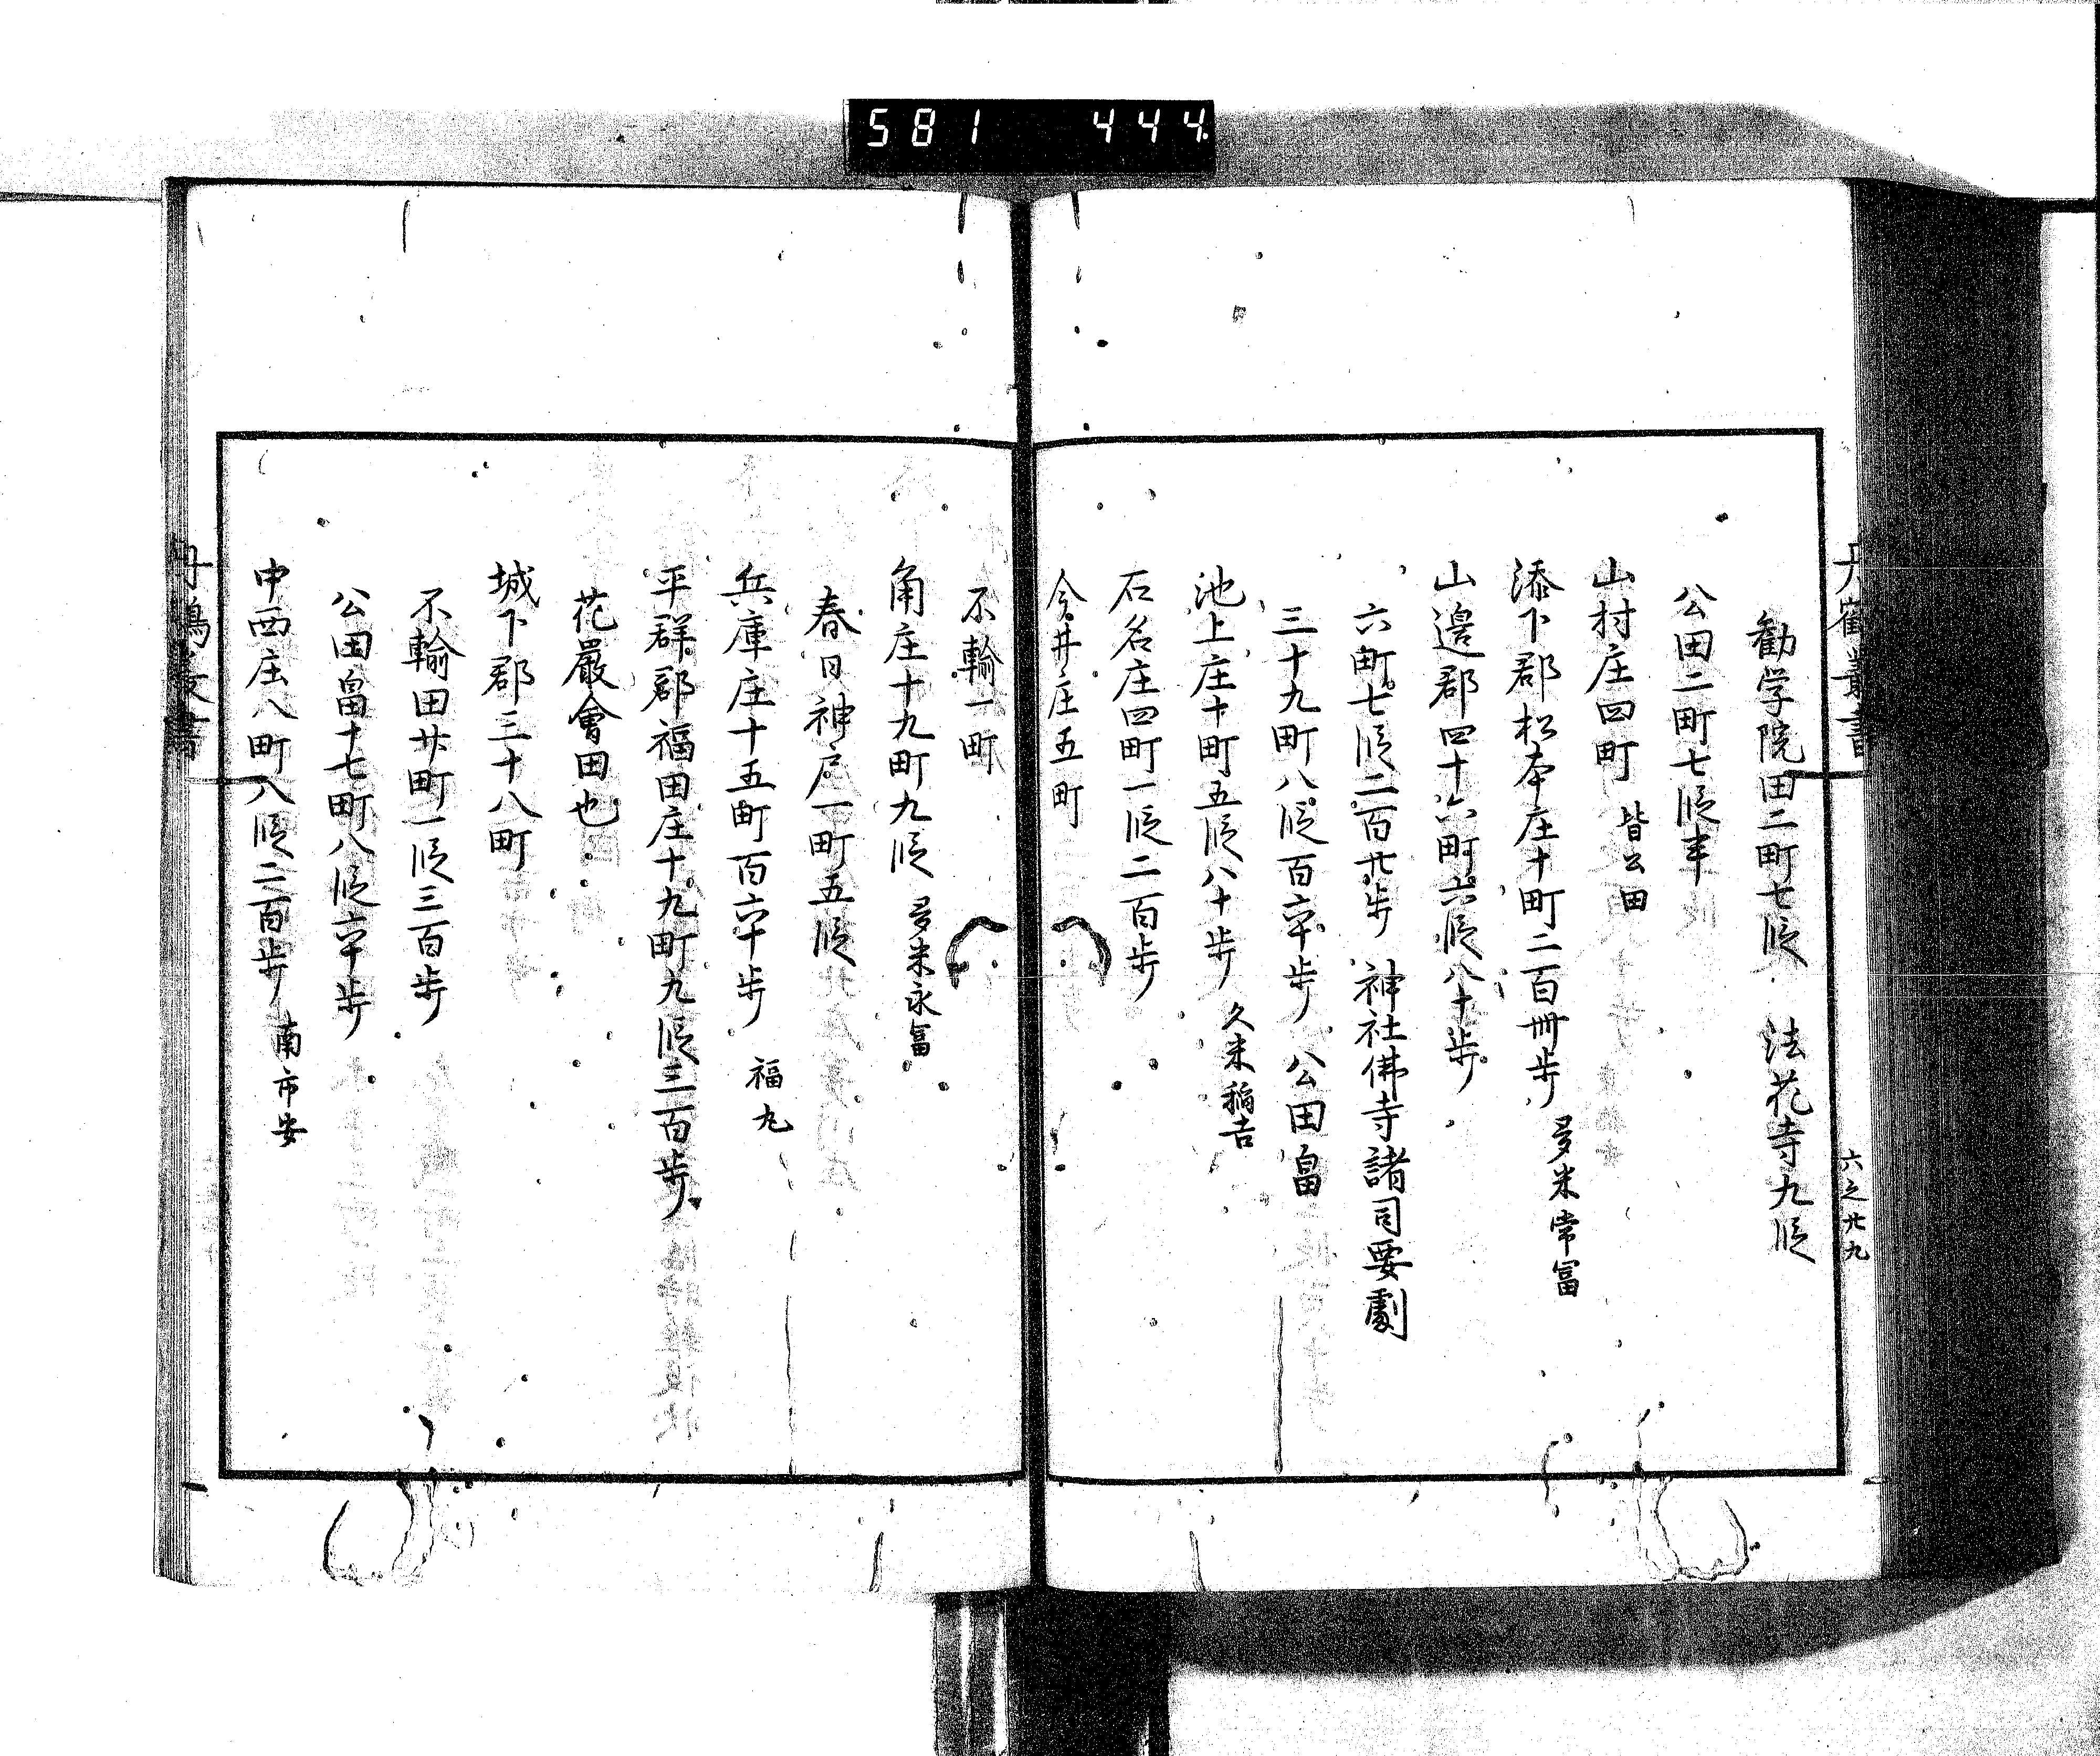 581 444
丹鶴叢書
六之廿九
勧学院田二町七段 法花寺九段
公田二町七段半
山村庄四町 皆公田
添下郡松本庄十町二百卌歩 多米常富
山邊郡四十六町六段八十歩
六町七段二百廿歩 神社佛寺諸司要劇
三十九町八段百六十歩 公田畠
池上庄十町五段八十歩 久米稲吉
石名庄四町一段二百歩
今井庄五町
不輸一町
角庄十九町九段 多米永富
春日神戸一町五段
兵庫庄十五町百六十歩 福丸
平群郡福田庄十九町九段三百歩
花嚴會田也
城下郡三十八町
不輸田廿町一段三百歩
公田畠十七町八段六十歩
中西庄八町八段二百歩 南市安
丹鶴叢書